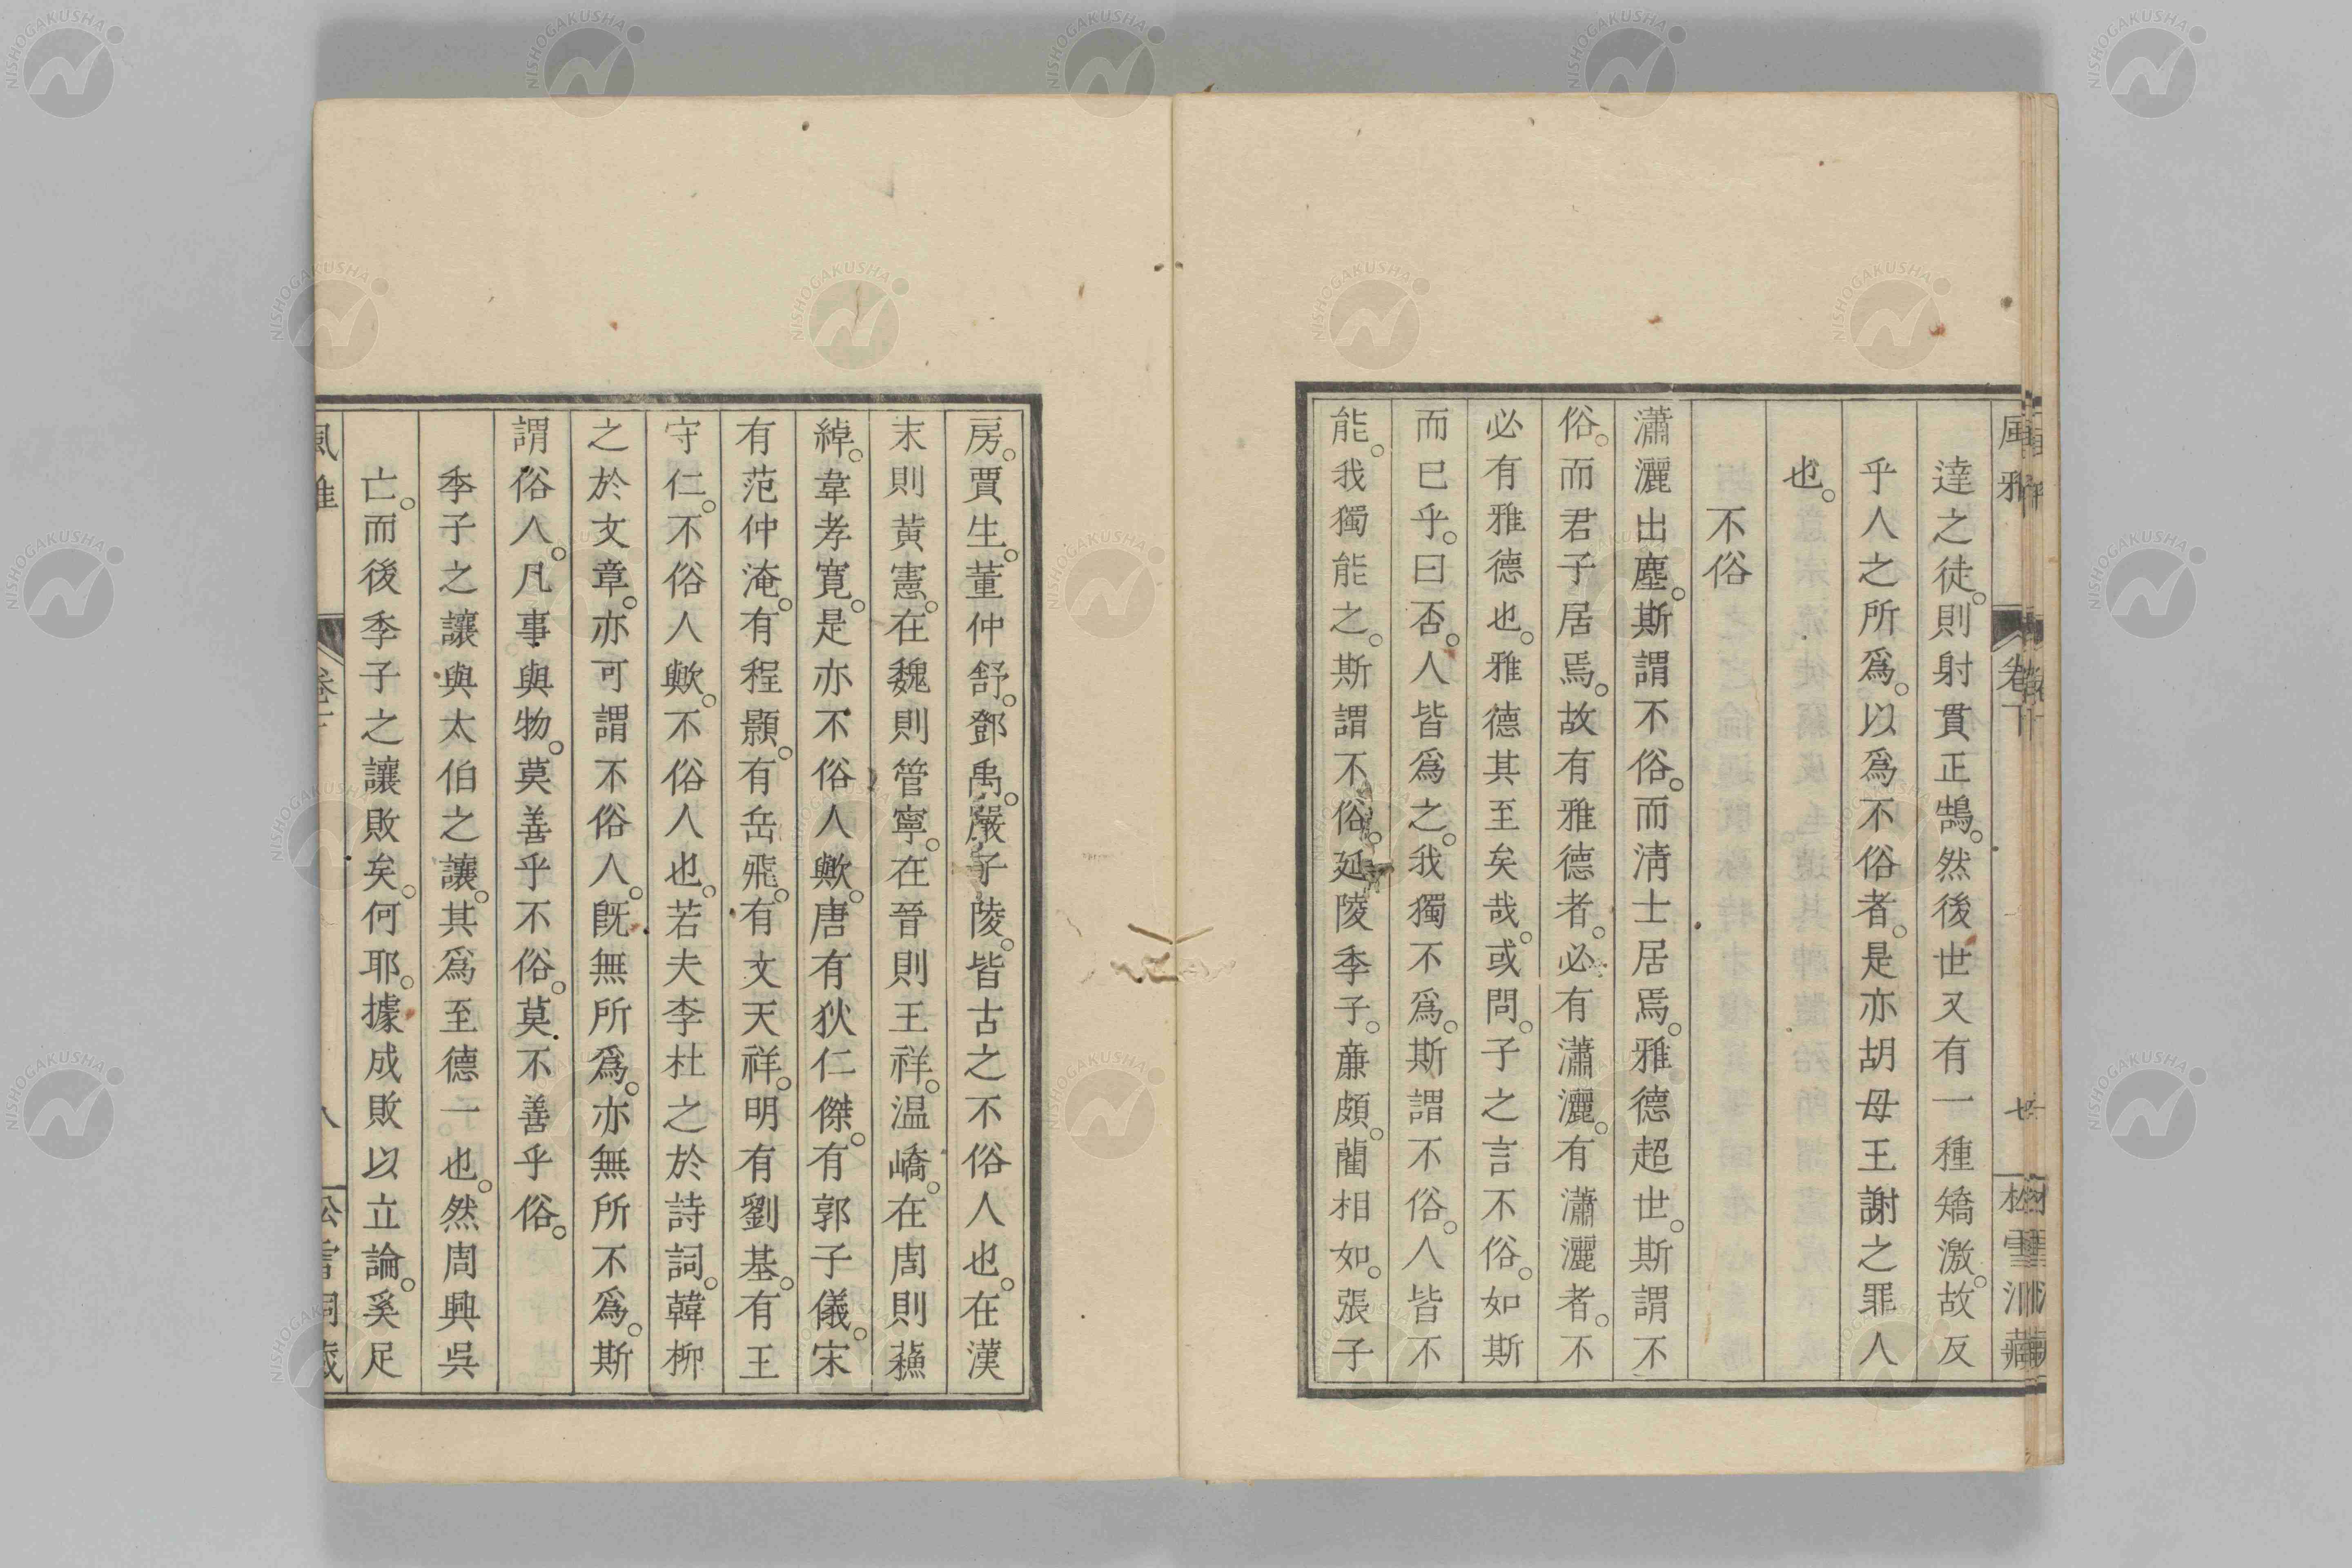 達之徒。則射貫正鵠。然後世又有一種矯激。故反
乎人之所爲。以爲不俗者。是亦胡母王謝之罪人
也。
不俗
瀟灑出塵。斯謂不俗。而淸士居焉。雅德超世。斯謂不
俗。而君子居焉。故有雅德者。必有瀟灑。有瀟灑者。不
必有雅德也。雅德其至矣哉。或問。子之言不俗。如斯
而已乎。曰否。人皆爲之。我獨不爲。斯謂不俗。人皆不
能。我獨能之。斯謂不俗。延陵季子。亷頗。藺相如。張子
房。賈生。董仲舒。鄧禹。嚴子陵。皆古之不俗人也。在漢
末則黃憲。在魏則管寧。在晉則王祥。温嶠。在周則蘓
綽。韋孝寬。是亦不俗人歟。唐有狄仁傑。有郭子儀。宋
有范仲淹。有程顥。有岳飛。有文天祥。明有劉基。有王
守仁。不俗人歟。不俗人也。若夫李杜之於詩詞。韓柳
之於文章。亦可謂不俗人。旣無所爲。亦無所不爲。斯
謂俗人。凡事與物。莫善乎不俗。莫不善乎俗。
季子之讓與太伯之讓。其爲至德一也。然周興吳
亡。而後季子之讓敗矣。何耶。據成敗以立論。奚足
風雅
卷下
松雪洞藏
NISHOGAKUSHA